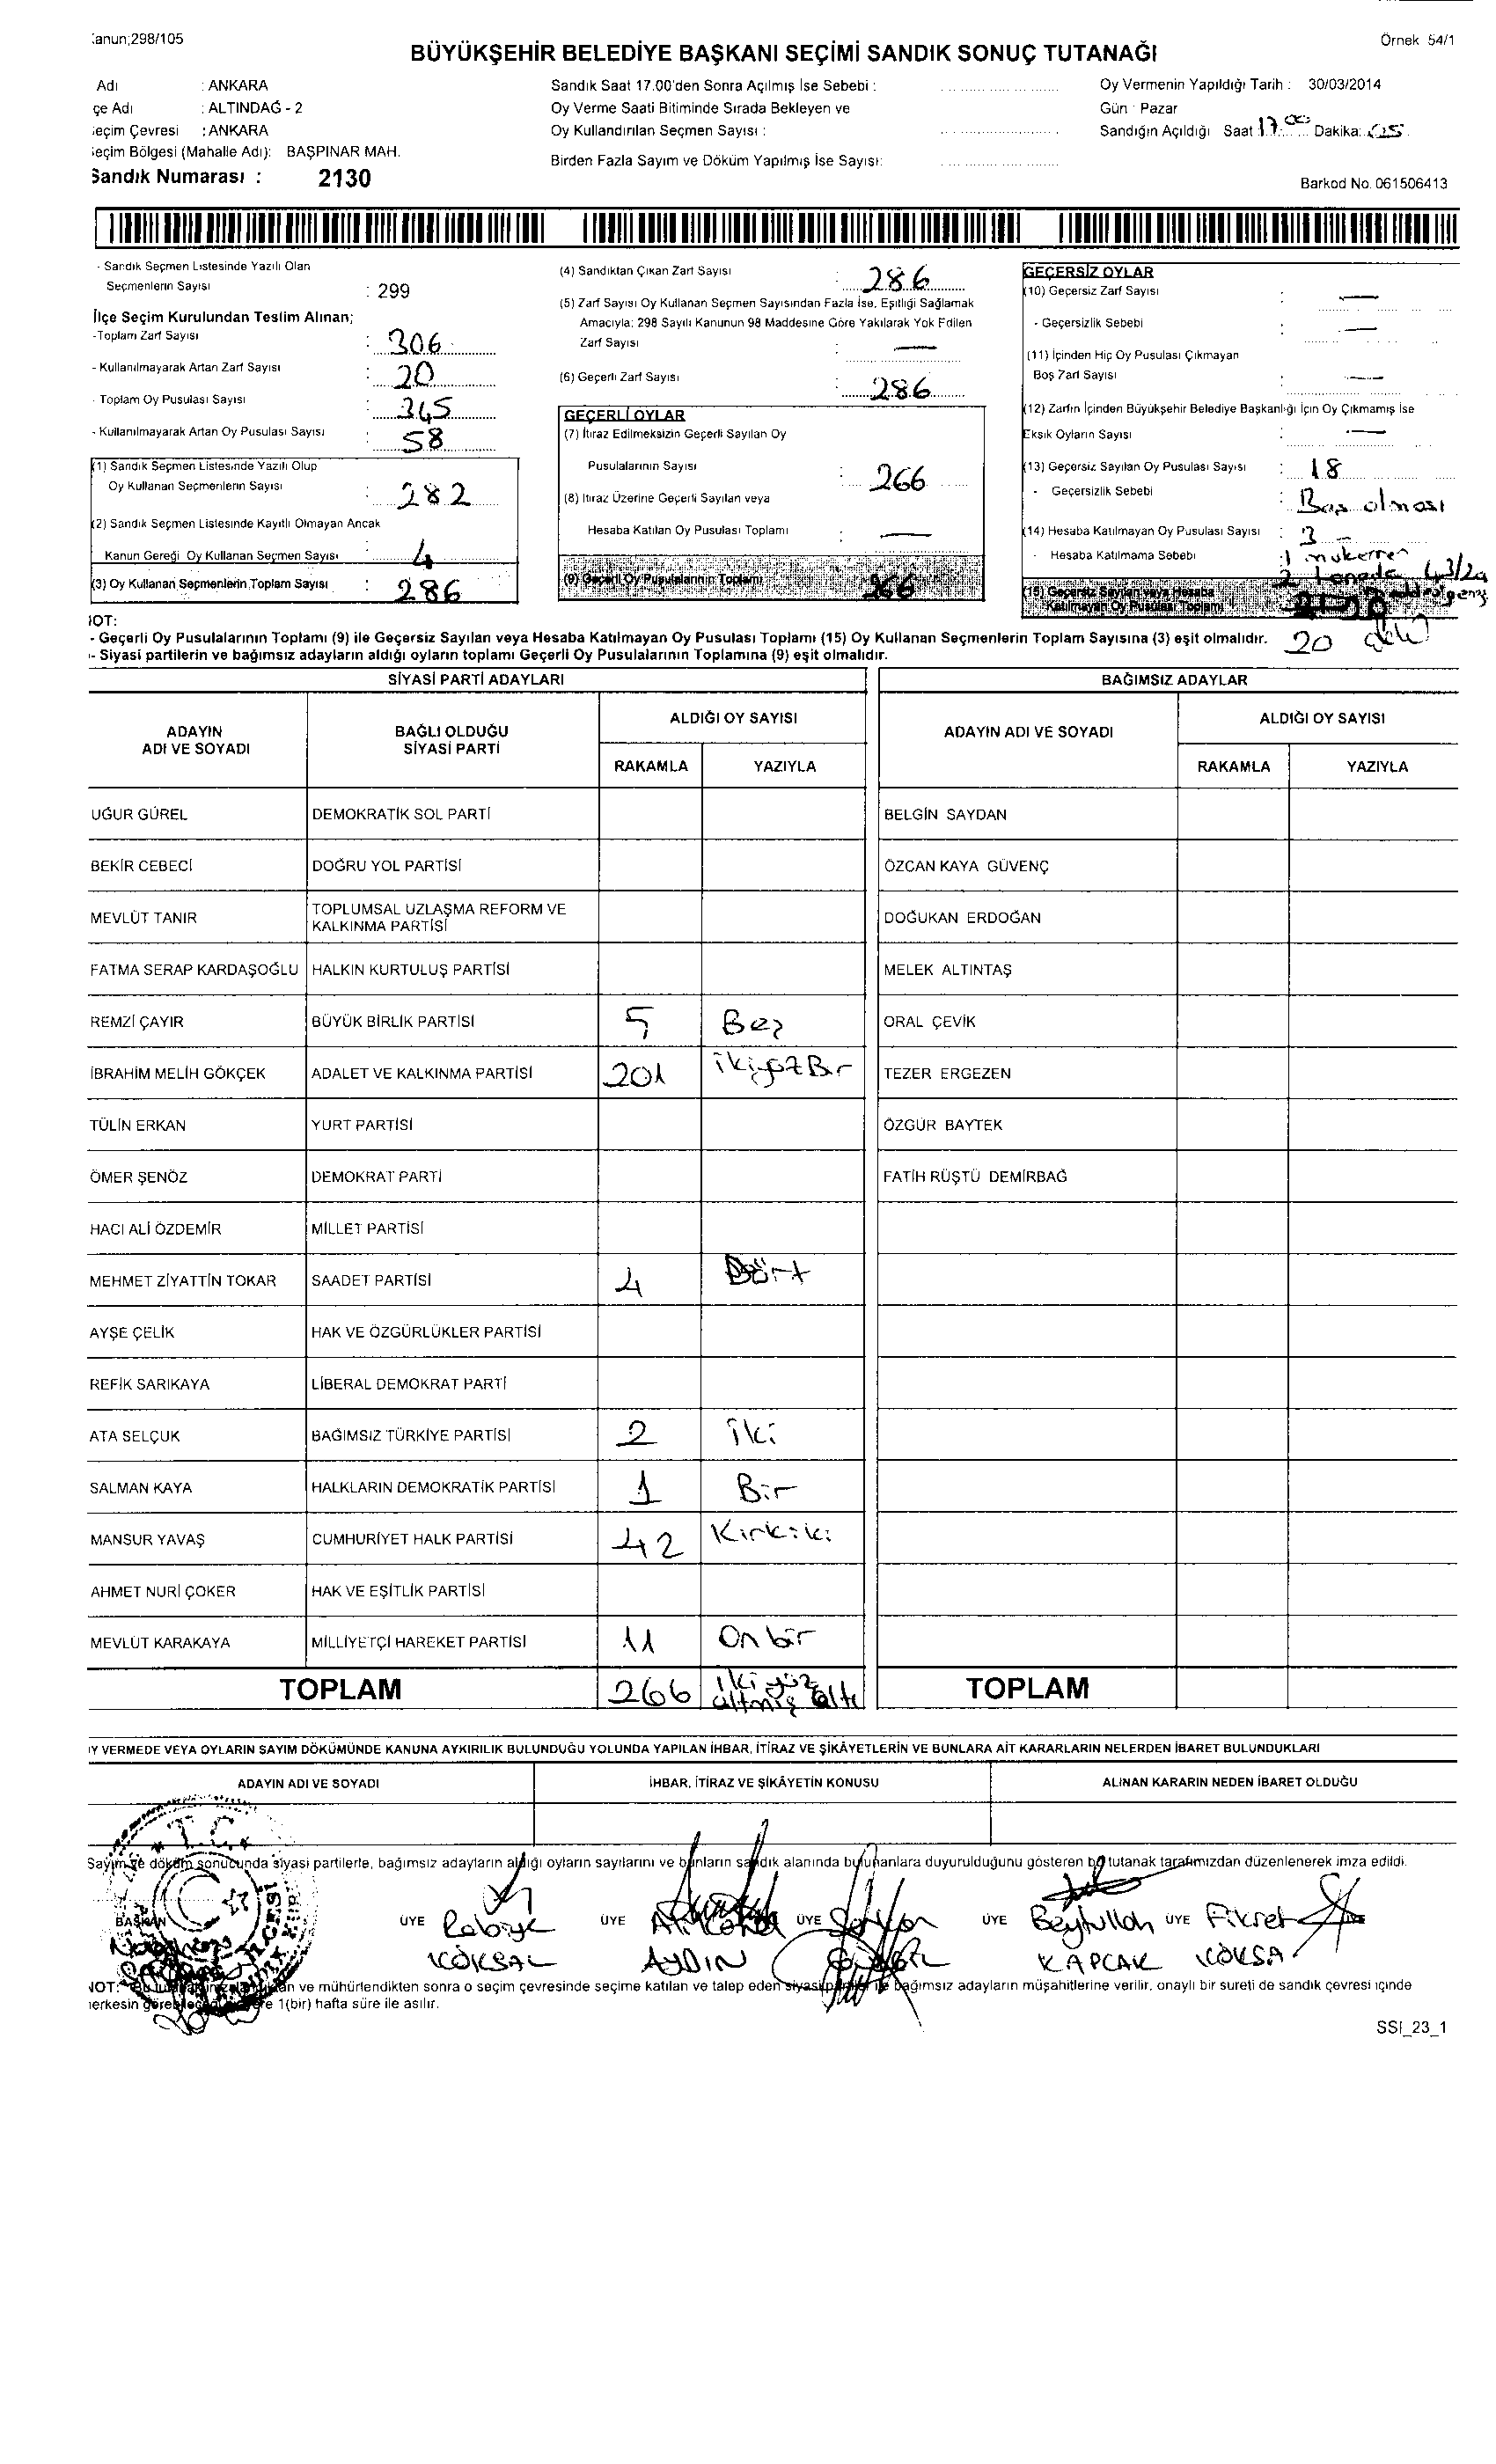 :anun;298/105
Örnek 54/1
BÜYÜKŞEHİR BELEDİYE BAŞKANI SEÇİMİ SANDIK SONUÇ TUTANAĞI
Adı : ANKARA
çe Adı : ALTINDAĞ - 2
eçim Çevresi : ANKARA
eçim Bölgesi (Mahalle Adı): BAŞPINAR MAH.
Sandık Numarası : 2130
Sandık Saat 17.00'den Sonra Açılmış İse Sebebi :
Oy Verme Saati Bitiminde Sırada Bekleyen ve
Oy Kullandırılan Seçmen Sayısı :
Birden Fazla Sayım ve Döküm Yapılmış İse Sayısı:
Oy Vermenin Yapıldığı Tarih : 30/03/2014
Gün : Pazar
Sandığın Açıldığı Saat 17:00 Dakika: 05
Barkod No. 061506413
- Sandık Seçmen Listesinde Yazılı Olan
Seçmenlerin Sayısı : 299
İlçe Seçim Kurulundan Teslim Alınan;
-Toplam Zarf Sayısı : 306
- Kullanılmayarak Artan Zarf Sayısı : 20
- Toplam Oy Pusulası Sayısı : 345
- Kullanılmayarak Artan Oy Pusulası Sayısı : 58
(1) Sandık Seçmen Listesinde Yazılı Olup
Oy Kullanan Seçmenlerin Sayısı : 282
(2) Sandık Seçmen Listesinde Kayıtlı Olmayan Ancak
Kanun Gereği Oy Kullanan Seçmen Sayısı : 4
(3) Oy Kullanan Seçmenlerin Toplam Sayısı : 286
(4) Sandıktan Çıkan Zarf Sayısı : 286
(5) Zarf Sayısı Oy Kullanan Seçmen Sayısından Fazla İse, Eşitliği Sağlamak
Amacıyla; 298 Sayılı Kanunun 98 Maddesine Göre Yakılarak Yok Edilen
Zarf Sayısı : —
(6) Geçerli Zarf Sayısı : 286
GEÇERLİ OYLAR
(7) İtiraz Edilmeksizin Geçerli Sayılan Oy
Pusulalarının Sayısı : 266
(8) İtiraz Üzerine Geçerli Sayılan veya
Hesaba Katılan Oy Pusulası Toplamı : —
(9) Geçerli Oy Pusulalarının Toplamı 266
GEÇERSİZ OYLAR
(10) Geçersiz Zarf Sayısı : —
- Geçersizlik Sebebi : —
(11) İçinden Hiç Oy Pusulası Çıkmayan
Boş Zarf Sayısı : —
(12) Zarfın İçinden Büyükşehir Belediye Başkanlığı İçin Oy Çıkmamış İse
Eksik Oyların Sayısı : —
(13) Geçersiz Sayılan Oy Pusulası Sayısı : 18
- Geçersizlik Sebebi : Boş olması
(14) Hesaba Katılmayan Oy Pusulası Sayısı : 3
- Hesaba Katılmama Sebebi : 1 mükerrer
2 tanede 43/2a
(15) Geçersiz Sayılan veya Hesaba
Katılmayan Oy Pusulası Toplamı
20
NOT:
- Geçerli Oy Pusulalarının Toplamı (9) ile Geçersiz Sayılan veya Hesaba Katılmayan Oy Pusulası Toplamı (15) Oy Kullanan Seçmenlerin Toplam Sayısına (3) eşit olmalıdır.
- Siyasi partilerin ve bağımsız adayların aldığı oyların toplamı Geçerli Oy Pusulalarının Toplamına (9) eşit olmalıdır.
SİYASİ PARTİ ADAYLARI BAĞIMSIZ ADAYLAR
ADAYIN ADI VE SOYADI BAĞLI OLDUĞU SİYASİ PARTİ ALDIĞI OY SAYISI ADAYIN ADI VE SOYADI ALDIĞI OY SAYISI
RAKAMLA YAZIYLA RAKAMLA YAZIYLA
UĞUR GÜREL DEMOKRATİK SOL PARTİ BELGİN SAYDAN
BEKİR CEBECİ DOĞRU YOL PARTİSİ ÖZCAN KAYA GÜVENÇ
MEVLÜT TANIR TOPLUMSAL UZLAŞMA REFORM VE KALKINMA PARTİSİ DOĞUKAN ERDOĞAN
FATMA SERAP KARDAŞOĞLU HALKIN KURTULUŞ PARTİSİ MELEK ALTINTAŞ
REMZİ ÇAYIR BÜYÜK BİRLİK PARTİSİ 5 Beş ORAL ÇEVİK
İBRAHİM MELİH GÖKÇEK ADALET VE KALKINMA PARTİSİ 201 ikiyüzBir TEZER ERGEZEN
TÜLİN ERKAN YURT PARTİSİ ÖZGÜR BAYTEK
ÖMER ŞENÖZ DEMOKRAT PARTİ FATİH RÜŞTÜ DEMİRBAĞ
HACI ALİ ÖZDEMİR MİLLET PARTİSİ
MEHMET ZİYATTİN TOKAR SAADET PARTİSİ 4 Dört
AYŞE ÇELİK HAK VE ÖZGÜRLÜKLER PARTİSİ
REFİK SARIKAYA LİBERAL DEMOKRAT PARTİ
ATA SELÇUK BAĞIMSIZ TÜRKİYE PARTİSİ 2 iki
SALMAN KAYA HALKLARIN DEMOKRATİK PARTİSİ 1 Bir
MANSUR YAVAŞ CUMHURİYET HALK PARTİSİ 42 Kırkiki
AHMET NURİ ÇOKER HAK VE EŞİTLİK PARTİSİ
MEVLÜT KARAKAYA MİLLİYETÇİ HAREKET PARTİSİ 11 Onbir
TOPLAM 266 iki yüz altmış altı TOPLAM
IY VERMEDE VEYA OYLARIN SAYIM DÖKÜMÜNDE KANUNA AYKIRILIK BULUNDUĞU YOLUNDA YAPILAN İHBAR, İTİRAZ VE ŞİKÂYETLERİN VE BUNLARA AİT KARARLARIN NELERDEN İBARET BULUNDUKLARI
ADAYIN ADI VE SOYADI İHBAR, İTİRAZ VE ŞİKÂYETİN KONUSU ALINAN KARARIN NEDEN İBARET OLDUĞU
T.C.
Sayım ve döküm sonucunda siyasi partilerle, bağımsız adayların aldığı oyların sayılarını ve bunların sandık alanında bulunanlara duyurulduğunu gösteren bu tutanak tarafımızdan düzenlenerek imza edildi.
BAŞKAN ÜYE Rabiye ÜYE ÜYE ÜYE Beytullah ÜYE Fikret
KÖKSAL AYDIN KAPCAK KÖKSAL
NOT: Bu tutanak ve mühürlendikten sonra o seçim çevresinde seçime katılan ve talep eden siyasi partiler ile bağımsız adayların müşahitlerine verilir, onaylı bir sureti de sandık çevresi içinde
herkesin görebileceği yere 1(bir) hafta süre ile asılır.
SSI_23_1